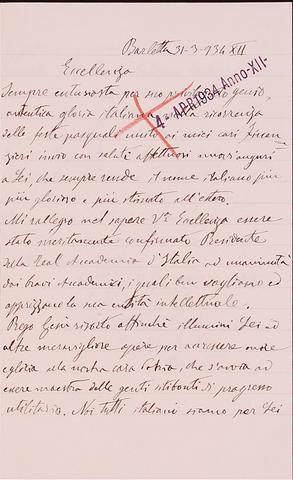 Barletta 31-3-934 XII
4 APR 1934 Anno XII
Eccellenza
Sempre entusiasta per suo genio,
autentica gloria italiana alla ricorrenza
delle feste pasquali unito ai miei cari
invio con saluti affettuosi auguri
a Lei, che sempre rende il nome italiano più
più glorioso e più stimato all'estero.
Mi rallegro nel sapere Vra Eccellenza essere
stato meritamente confermato Presidente
della Real Accademia d'Italia ad unanimità
dai bravi Accademici, i quali ben vogliono ed
apprezzano la sua entità intellettuale.
Prego Gesù risorto affinché illumini Lei ad
altre meravigliose opere per accrescere onore
e gloria alla nostra cara Patria, che s'avvia ad
essere maestra delle genti sitibonti di progresso
utilitario. Noi tutti italiani siamo per Lei